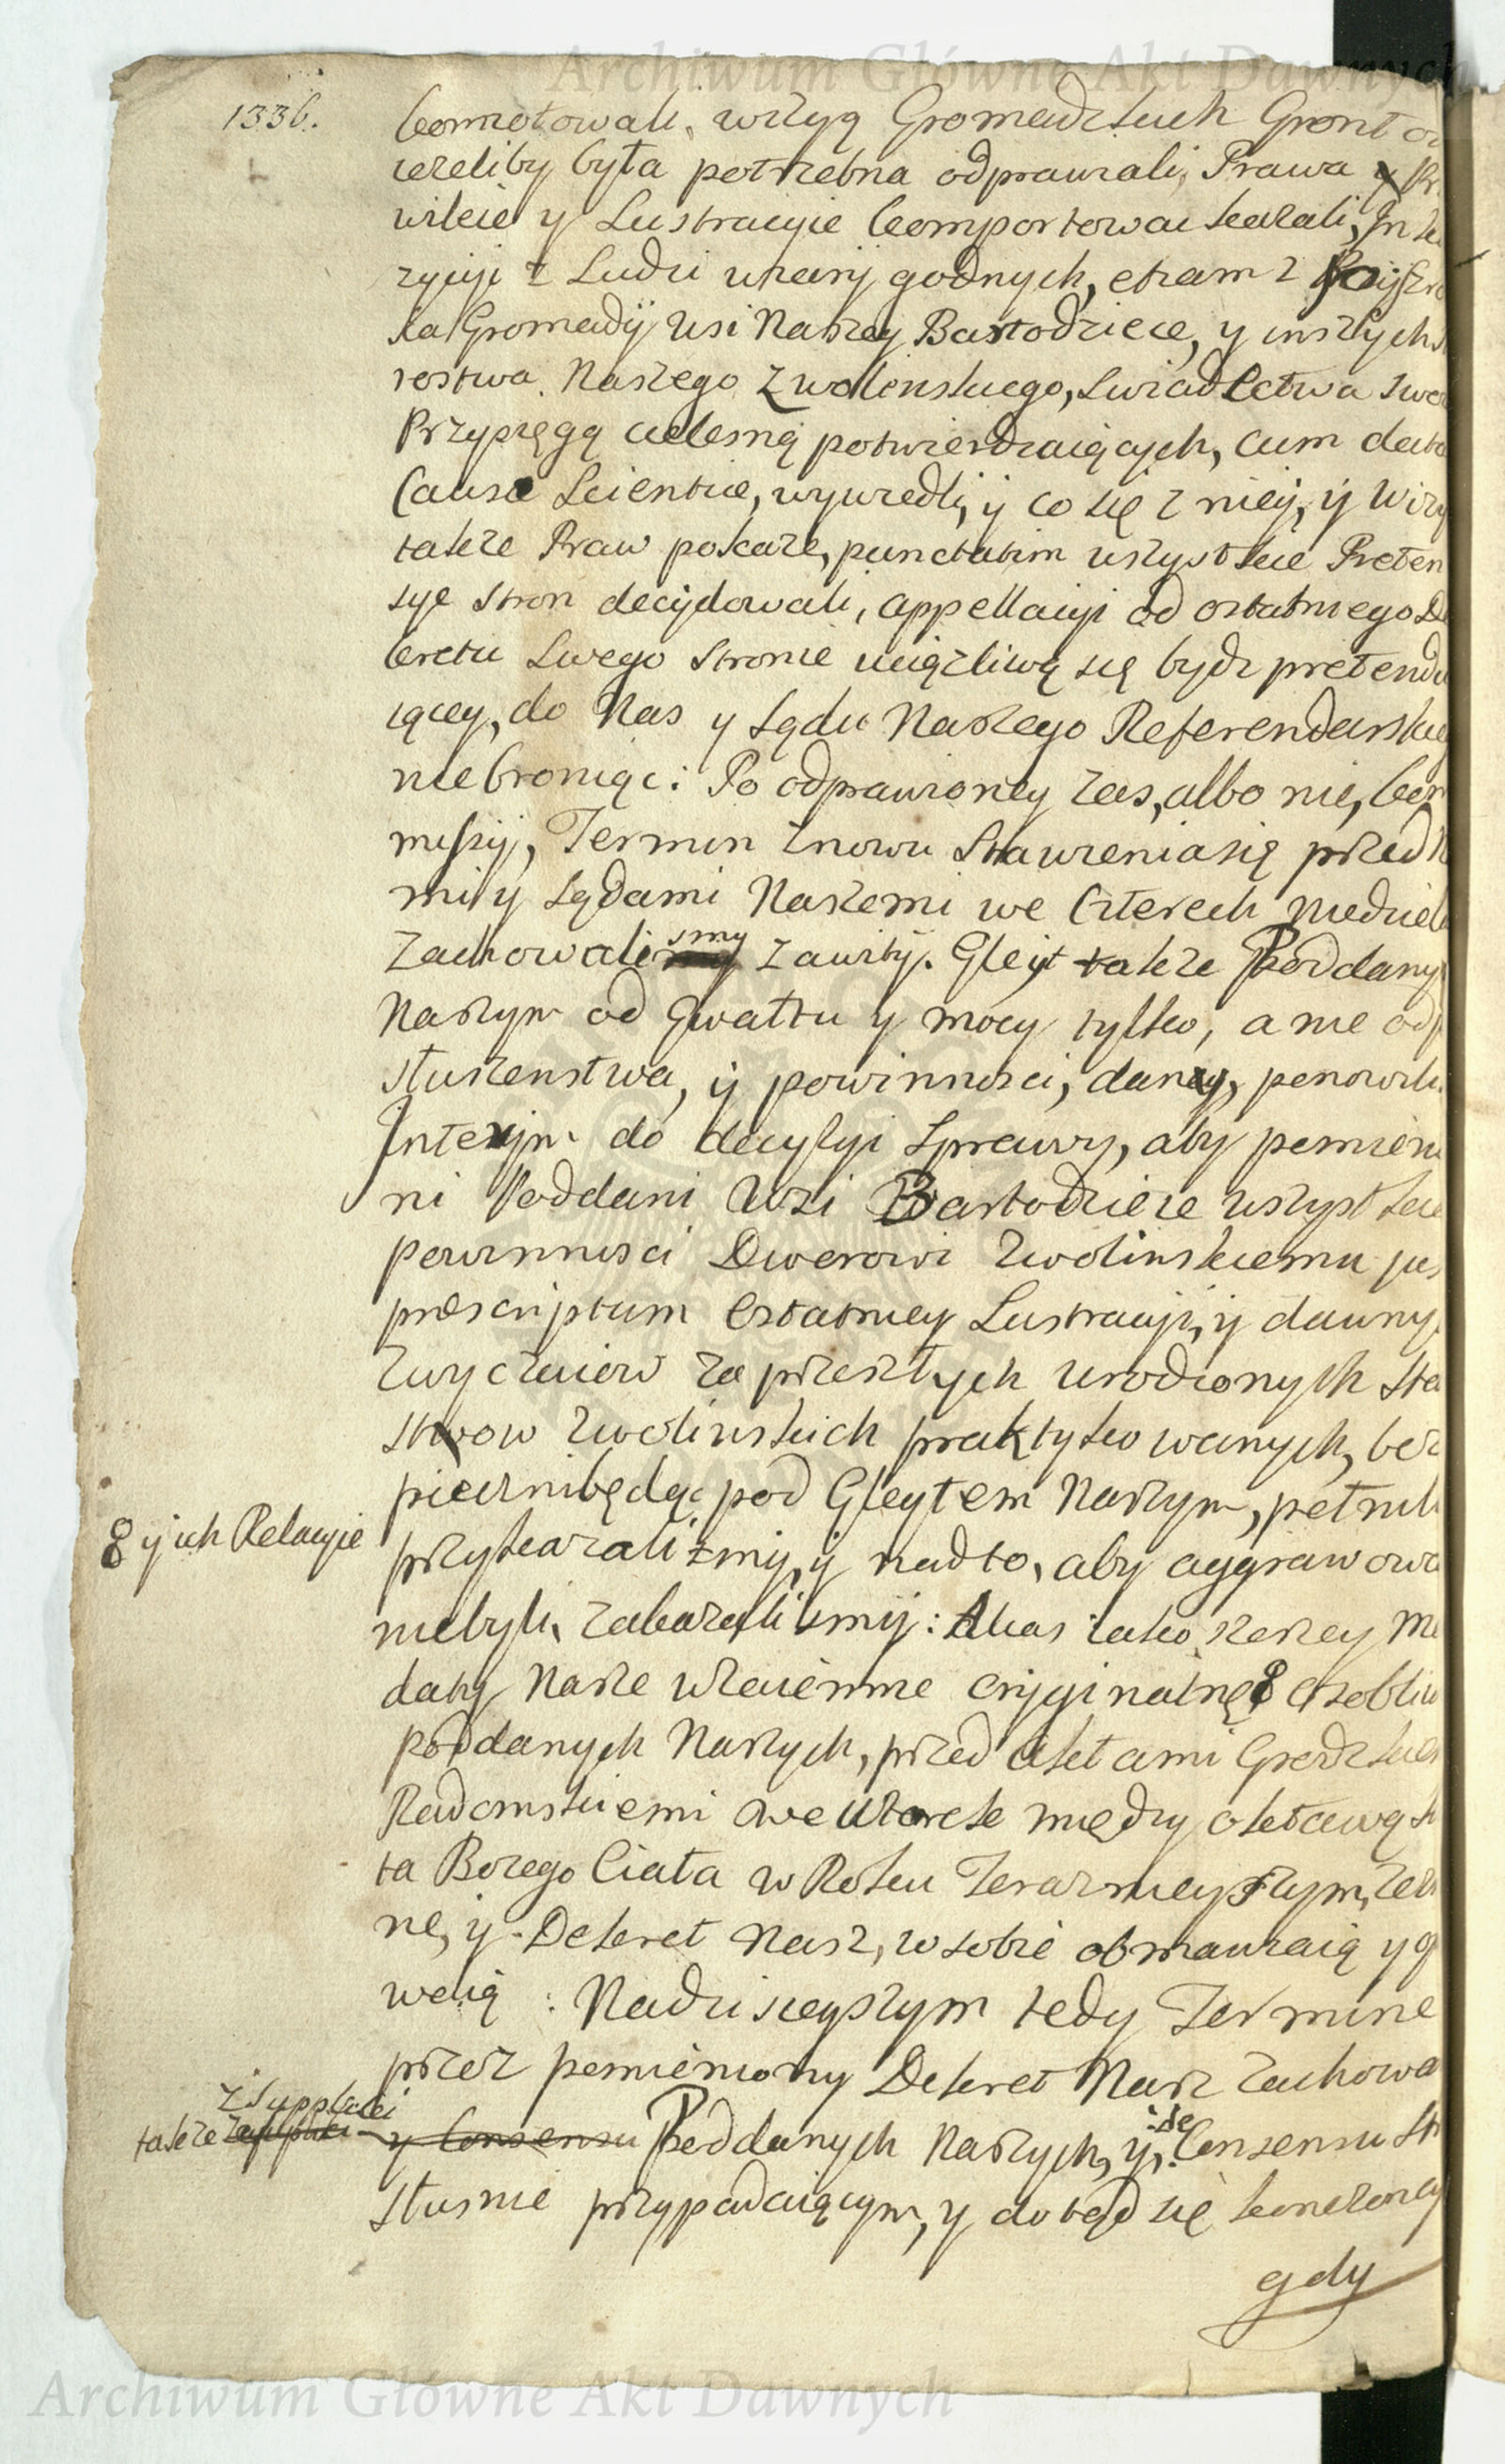 Archiwum Główne Akt Dawnych
1336.
komotowali, wizyą Gromadzkich Gront
ieżeliby była potrzebna odprawiali, Prawa y
wileie y Lustracyie komportować kazali,
zycyi z Ludzi wiary godnych, etiam z
ka Gromady wsi Naszey Bartodzieie, y inszych
rostwa Naszego Zwolenskiego, swiadectwa swo
Przysięgą cielesną potwierdzaiących, cum data
Causa Scientiæ, wywiedli, y co się z niey, y Wizy
także Praw pokaże, punctatim wszystkie Preten
sye stron decydowali, appellacyi od ostatniego De
kretu swego stronie uciążliwą się bydz pretendu
iącey, do Nas y Sądu Naszego Referendarskieg
niebroniąc: Po odprawioney zas, albo nie, kom
missyi, Termin znowu stawieniasię przed N
mi y Sądami Naszemi we Czterech Niedziel
zachowali smy zawity. Gleyt także Poddany
Naszym od gwałtu y mocy tylko, a nie od
słuszenstwa, y powinnosci, dany, ponowili
Interym do decyzyi sprawy, aby pomien
ni Poddani wsi Bartodzieie wszystkie
powinnosci Dworowi Zwolinskiemu
præscriptum Ostatniey Lustracyi, y dawny
zwyczaiow za przeszłych Urodzonych Sta
stwow Zwolinskich praktykowanych, bez
piecznibędąc pod Gleytem Naszym, pełnili
8 y ich Relacyie
przykazalismy, y nadto, aby aggrawowa
niebyli, zakazalismy: Akas iako szerzey Ma
daty Nasze wzaiemne oryginalne 8 osobliw
poddanych Naszych, przed Aktami Grodzkie
Radomskiemi we Wtorek między oktawą
ta Bożego Ciała w Roku Teraznieyszym, ze
ne, y Dekret Nasz, w sobie obmawiaią y
weią: Nadzisieyszym tedy Termine
przez pomieniony Dekret Nasz zachowa
z Supplacei
także
y Consensu Poddanych Naszych, y de Consensu St
słusnie przypadaiącym, y dotąd się konczoncy
gdy
Archiwum Główne Akt Dawnych